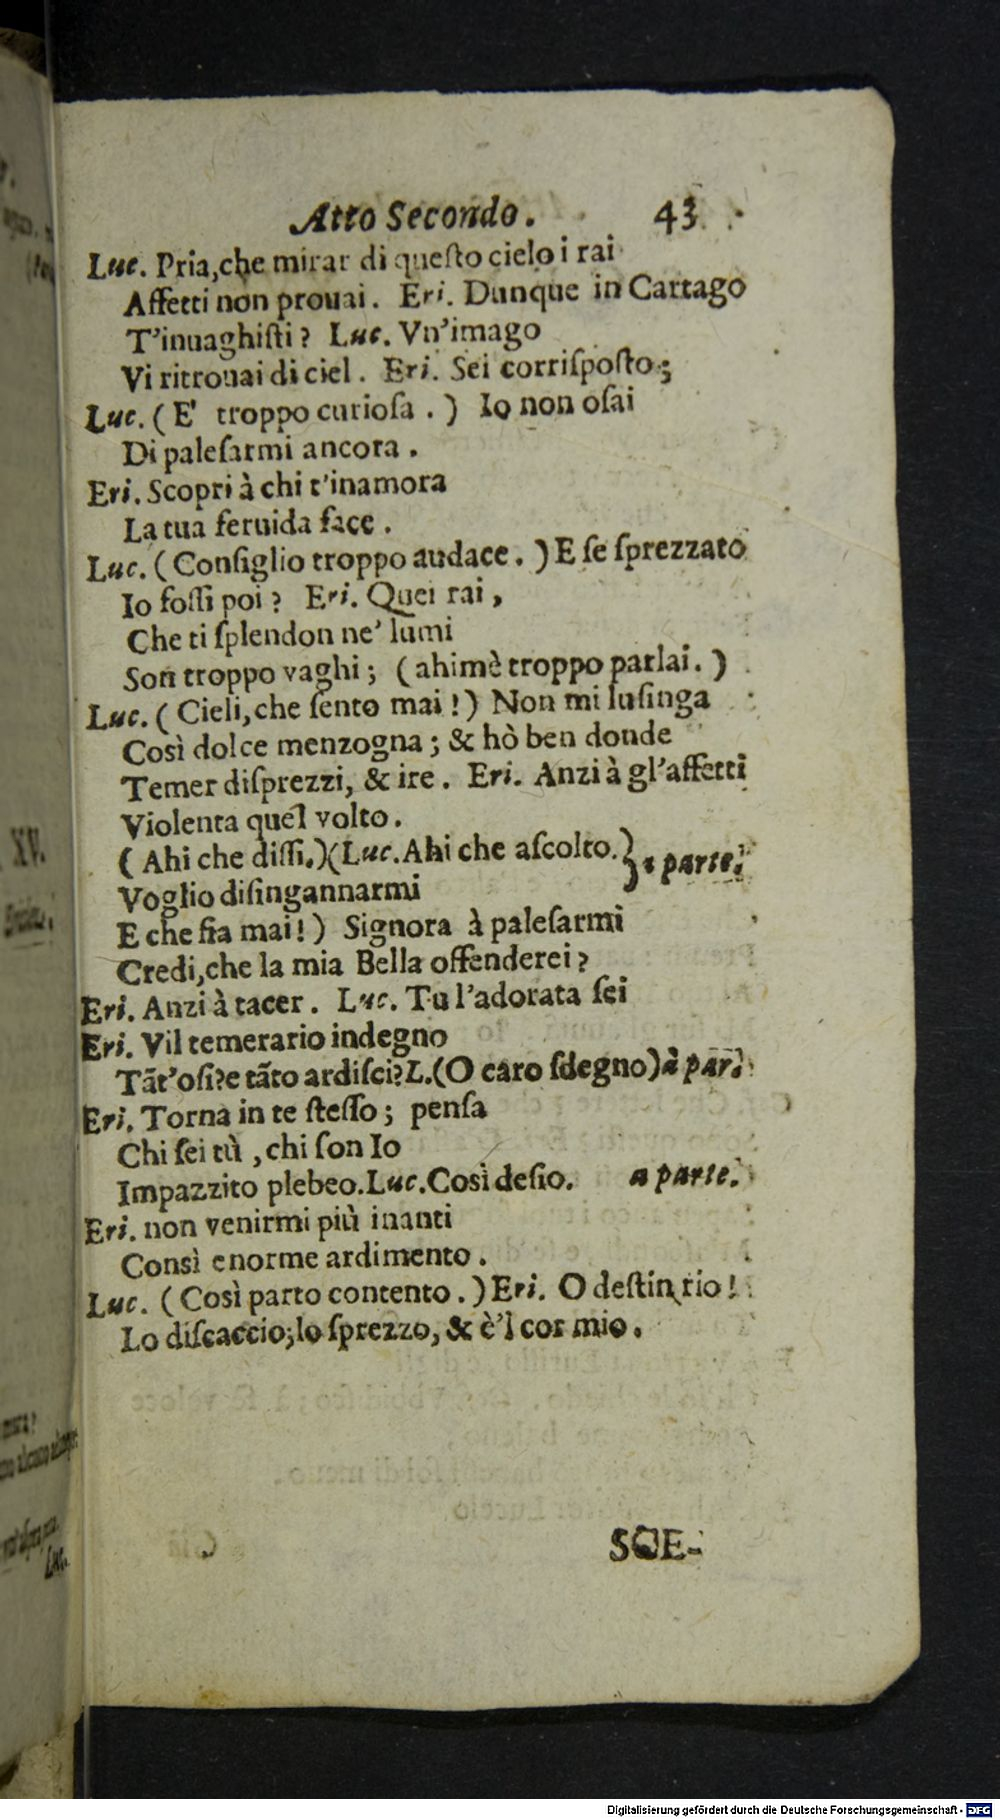 Atto Secondo. 43
Luc. Pria, che mirar di queſto cielo i rai
Affetti non prouai. Eri. Dunque in Cartago
T'inuaghiſti? Luc. Vn'imago
Vi ritrouai di ciel. Eri. Sei corriſpoſto;
Luc. (E' troppo curioſa.) Io non oſai
Di paleſarmi ancora.
Eri. Scopri à chi t'inamora
La tua feruida face.
Luc. (Conſiglio troppo audace.) E ſe ſprezzato
Io foſſi poi? Eri. Quei rai,
Che ti ſplendon ne' lumi
Son troppo vaghi; (ahimè troppo parlai.)
Luc. (Cieli, che ſento mai!) Non mi luſinga
Così dolce menzogna; & hò ben donde
Temer diſprezzi, & ire. Eri. Anzi à gl'affetti
Violenta quel volto.
(Ahi che diſſi.)(Luc. Ahi che aſcolto.)} a parte.
Voglio diſingannarmi
E che fia mai!) Signora à paleſarmi
Credi, che la mia Bella offenderei?
Eri. Anzi à tacer. Luc. Tu l'adorata ſei
Eri. Vil temerario indegno
Tāt'oſi? e tāto ardiſci? L. (O caro ſdegno) à par.
Eri. Torna in te ſteſſo; penſa
Chi ſei tù, chi ſon Io
Impazzito plebeo. Luc. Così deſio. a parte.
Eri. non venirmi più inanti
Consì enorme ardimento.
Luc. (Così parto contento.) Eri. O deſtin rio!
Lo diſcaccio; lo ſprezzo, & è'l cor mio.
SCE-
XV.
Luc.
Digitalisierung gefördert durch die Deutsche Forschungsgemeinschaft - DFG